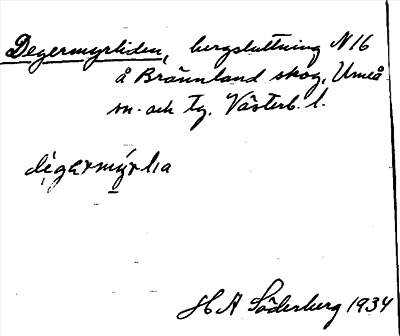 Degermyrliden, bergsluttning N16
å Brännland skog, Umeå
sn. och tg. Västerb. l.
degermyrlıa
H A Söderberg 1934